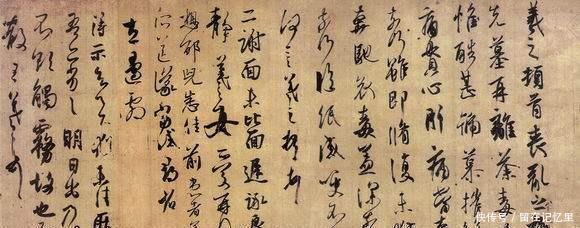 羲之頓首喪亂之極
先墓再離荼毒
惟酷甚號慕摧
痛貫心肝痛當
奈何雖即脩復未
奔馳哀毒益深奈
奈何臨紙感哽不
何言羲之頓首
二謝面未比面遲詠良
靜羲之女愛再
想邵兒悉佳前患者
所送議當試尋省
左邊劇
得示知足下猶未佳耿
吾亦劣劣明日出乃
不欲觸霧故也
散王羲之頓
快传号/留在记忆里